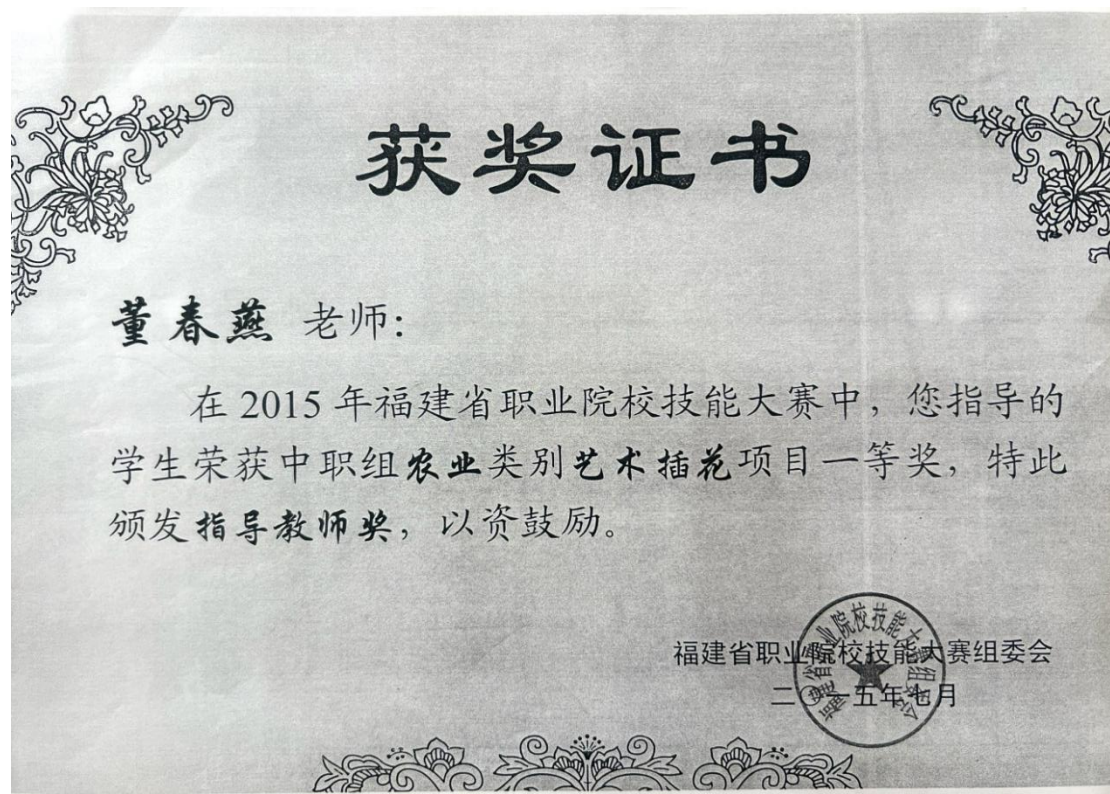 获奖证书
董春燕 老师：
在 2015 年福建省职业院校技能大赛中，您指导的
学生荣获中职组农业类别艺术插花项目一等奖，特此
颁发指导教师奖，以资鼓励。
福建省职业院校技能大赛组委会
二〇一五年七月
福建省职业院校技能大赛组委会